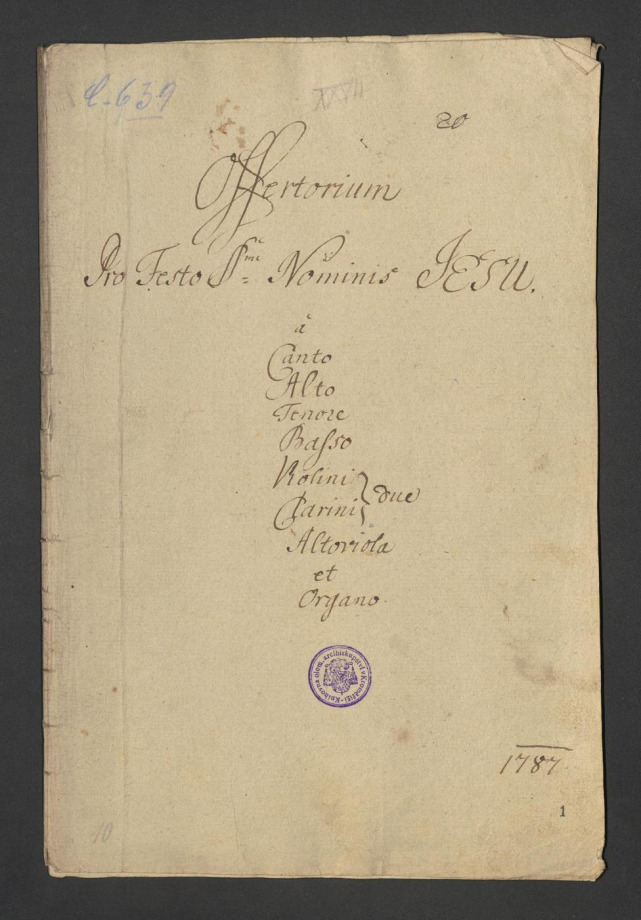 C-639
XXVII
20
Offertorium
Pro Festo SSmi Nominis JESU.
à
Canto
Alto
Tenore
Basso
Violini
Clarini } due
Altoviola
et
Organo.
Knihovna olom. arcibiskupství v Kroměříži
1787
1
10